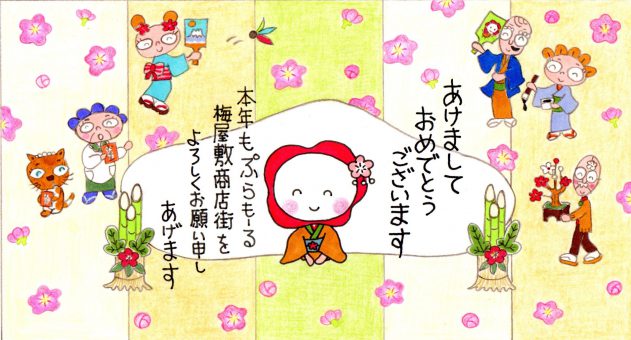 あけまして
おめでとう
ございます
本年もぷらもーる
梅屋敷商店街を
よろしくお願い申し
あげます